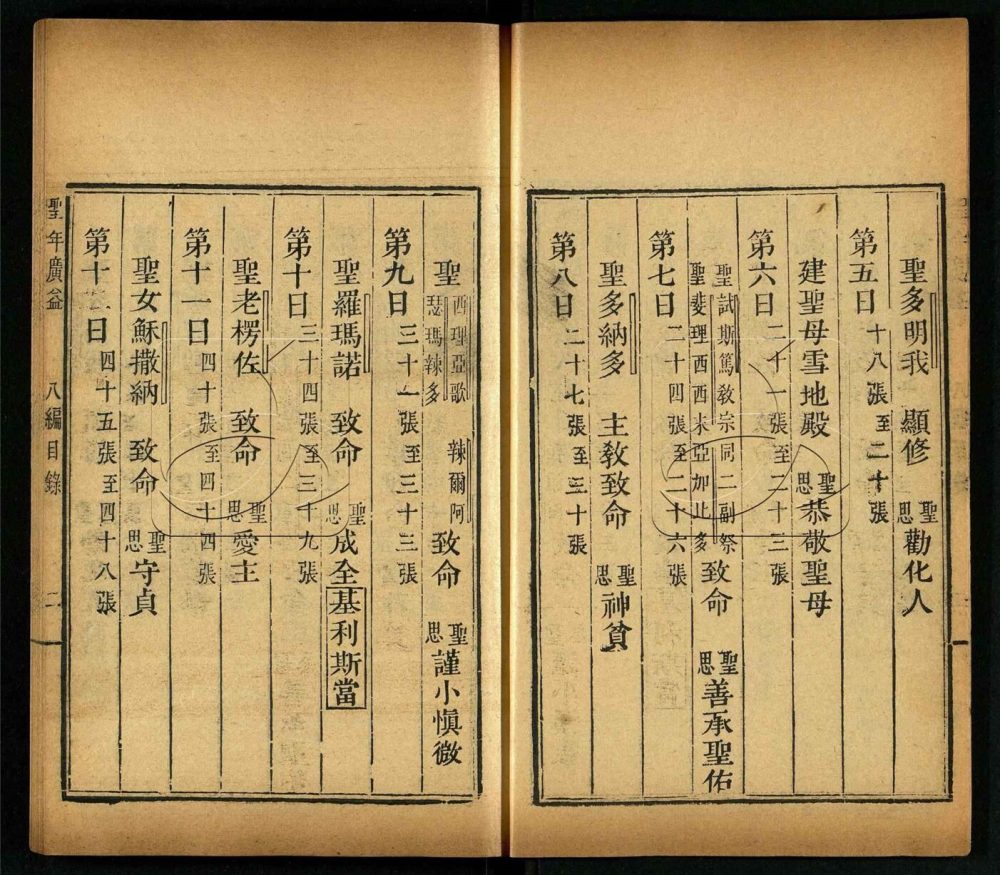 聖多明我 顯修 聖思勸化人
第五日 十八張至二十張
建聖母雪地殿 聖思恭敬聖母
第六日 二十一張至二十三張
聖試斯篤教宗同二副祭
聖斐理西西末亞加止多 致命 聖思善承聖佑
第七日 二十四張至二十六張
聖多納多 主教致命 聖思神貧
第八日 二十七張至三十張
聖西理亞歌 辣爾阿
瑟瑪辣多 致命 聖思謹小慎微
第九日 三十一張至三十三張
聖羅瑪諾 致命 聖思成全基利斯當
第十日 三十四張至三十九張
聖老楞佐 致命 聖思愛主
第十一日 四十張至四十四張
聖女穌撒納 致命 聖思守貞
第十二日 四十五張至四十八張
聖年廣益 八編目錄 二